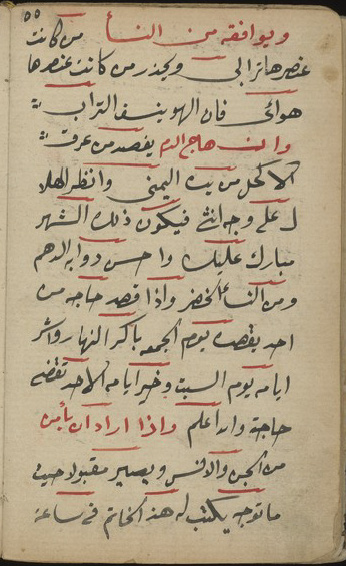 ٥٥
ويوافقه من النسأ من كانت
عنصرها ترابى ويحذر من كانت عنصرها
هوائى فان الهوا ينسف التراب
وان هاج الدم يفصد من عرق
الاكحل من يده اليمنى وانظر الهلا
ل على وجه انثى فيكون ذلك الشهر
مبارك عليك واحسن دوابه الدهم
ومن النسأ الخضر واذا قصد حاجه من
احد يقصده يوم الجمعه باكر النهار واشر
ايامه يوم السبت وخير ايامه الاحد تقضى
حاجته والله اعلم واذا اراد ان يأمن
من الجن والانس ويصير مقبولا حيث
ما توجه يكتب له هذا الخاتم فى ساعة